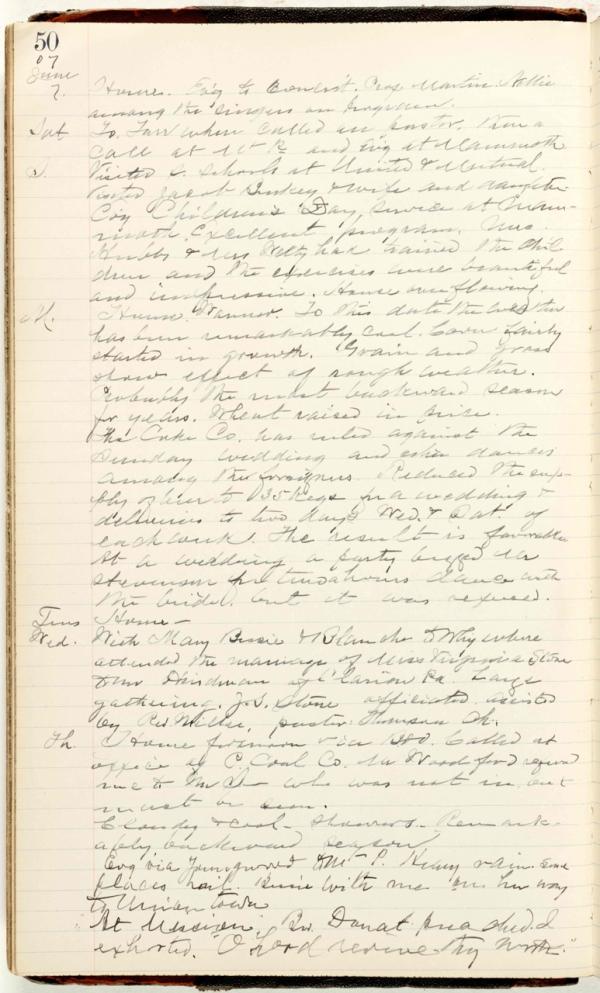 50
07
June
7. Home. Ev'g to Concert. Prof. Martin. Nellie
among the singers on program.
Sat To Tarr where called on pastor. Then a
call at Mt P. and ev'g at Mammoth
S. Visited S. Schools at United & Mutual.
Visited Jacob and wife and daughter
Ev'g Children's Day, service at Mam-
moth. Excellent program. Mrs.
Hubbs & Mrs had trained the chil
dren and the exercises were beautiful
and impressive. House overflowing.
M. Home. To this date the weather
has been remarkably cool. Corn fairly
started in growth. Grain and grass
show effect of rough weather.
Probably the most backward season
for years. Wheat raised in price.
The Coke Co. has ruled against the
Sunday wedding and other dances
among the foreigners. Reduced the sup-
ply of beer to 35 Kegs for a wedding &
deliveries to two days Wed. & Sat. of
each week. The result is favorable
At a wedding a party begged Mr
Stevenson for two hours dance with
the bride, but it was refused.
Tues Home —
Wed. With Mary Bessie & Blanche to where
attended the marriage of Miss Virginia Stone
to Mr of Clarion Pa. Large
gathering. J.S. Stone officiated assisted
by Rev Miller, pastor Thomson Ch.
Th. Home forenoon & via B&O. Called at
office of C. Coal Co. Mr Woodford referred
me to Mr who was not in, but
must be seen.
Cloudy & cool - showers - Remark-
ably backward season
Evg via Youngwood to Mt P. Heavy rain. Some
places hail. Bessie with me on her way
to Uniontown
At Mission. Rev. Danat preached. I
exhorted. "O Lord revive thy work."